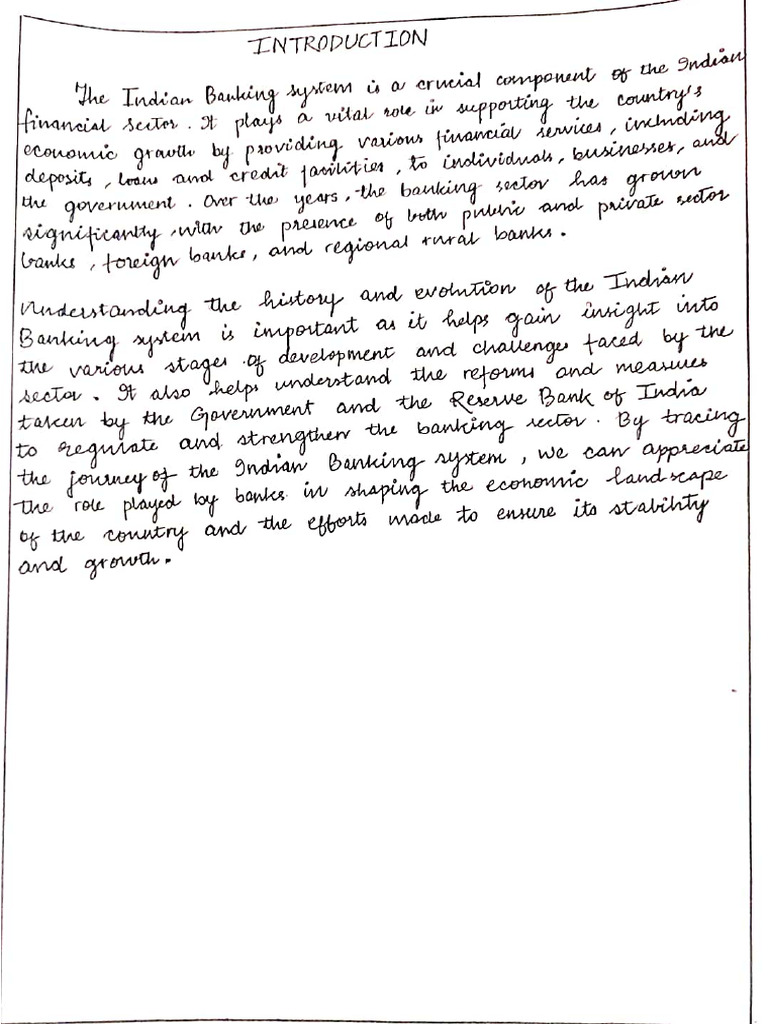 INTRODUCTION
The Indian Banking system is a crucial component of the Indian
financial sector. It plays a vital role in supporting the country's
economic growth by providing various financial services, including
deposits, loans and credit facilities, to individuals, businesses, and
the government. Over the years, the banking sector has grown
significantly with the presence of both public and private sector
banks, foreign banks, and regional rural banks.
Understanding the history and evolution of the Indian
Banking system is important as it helps gain insight into
the various stages of development and challenges faced by the
sector. It also helps understand the reforms and measures
taken by the Government and the Reserve Bank of India
to regulate and strengthen the banking sector. By tracing
the journey of the Indian Banking system, we can appreciate
the role played by banks in shaping the economic landscape
of the country and the efforts made to ensure its stability
and growth.